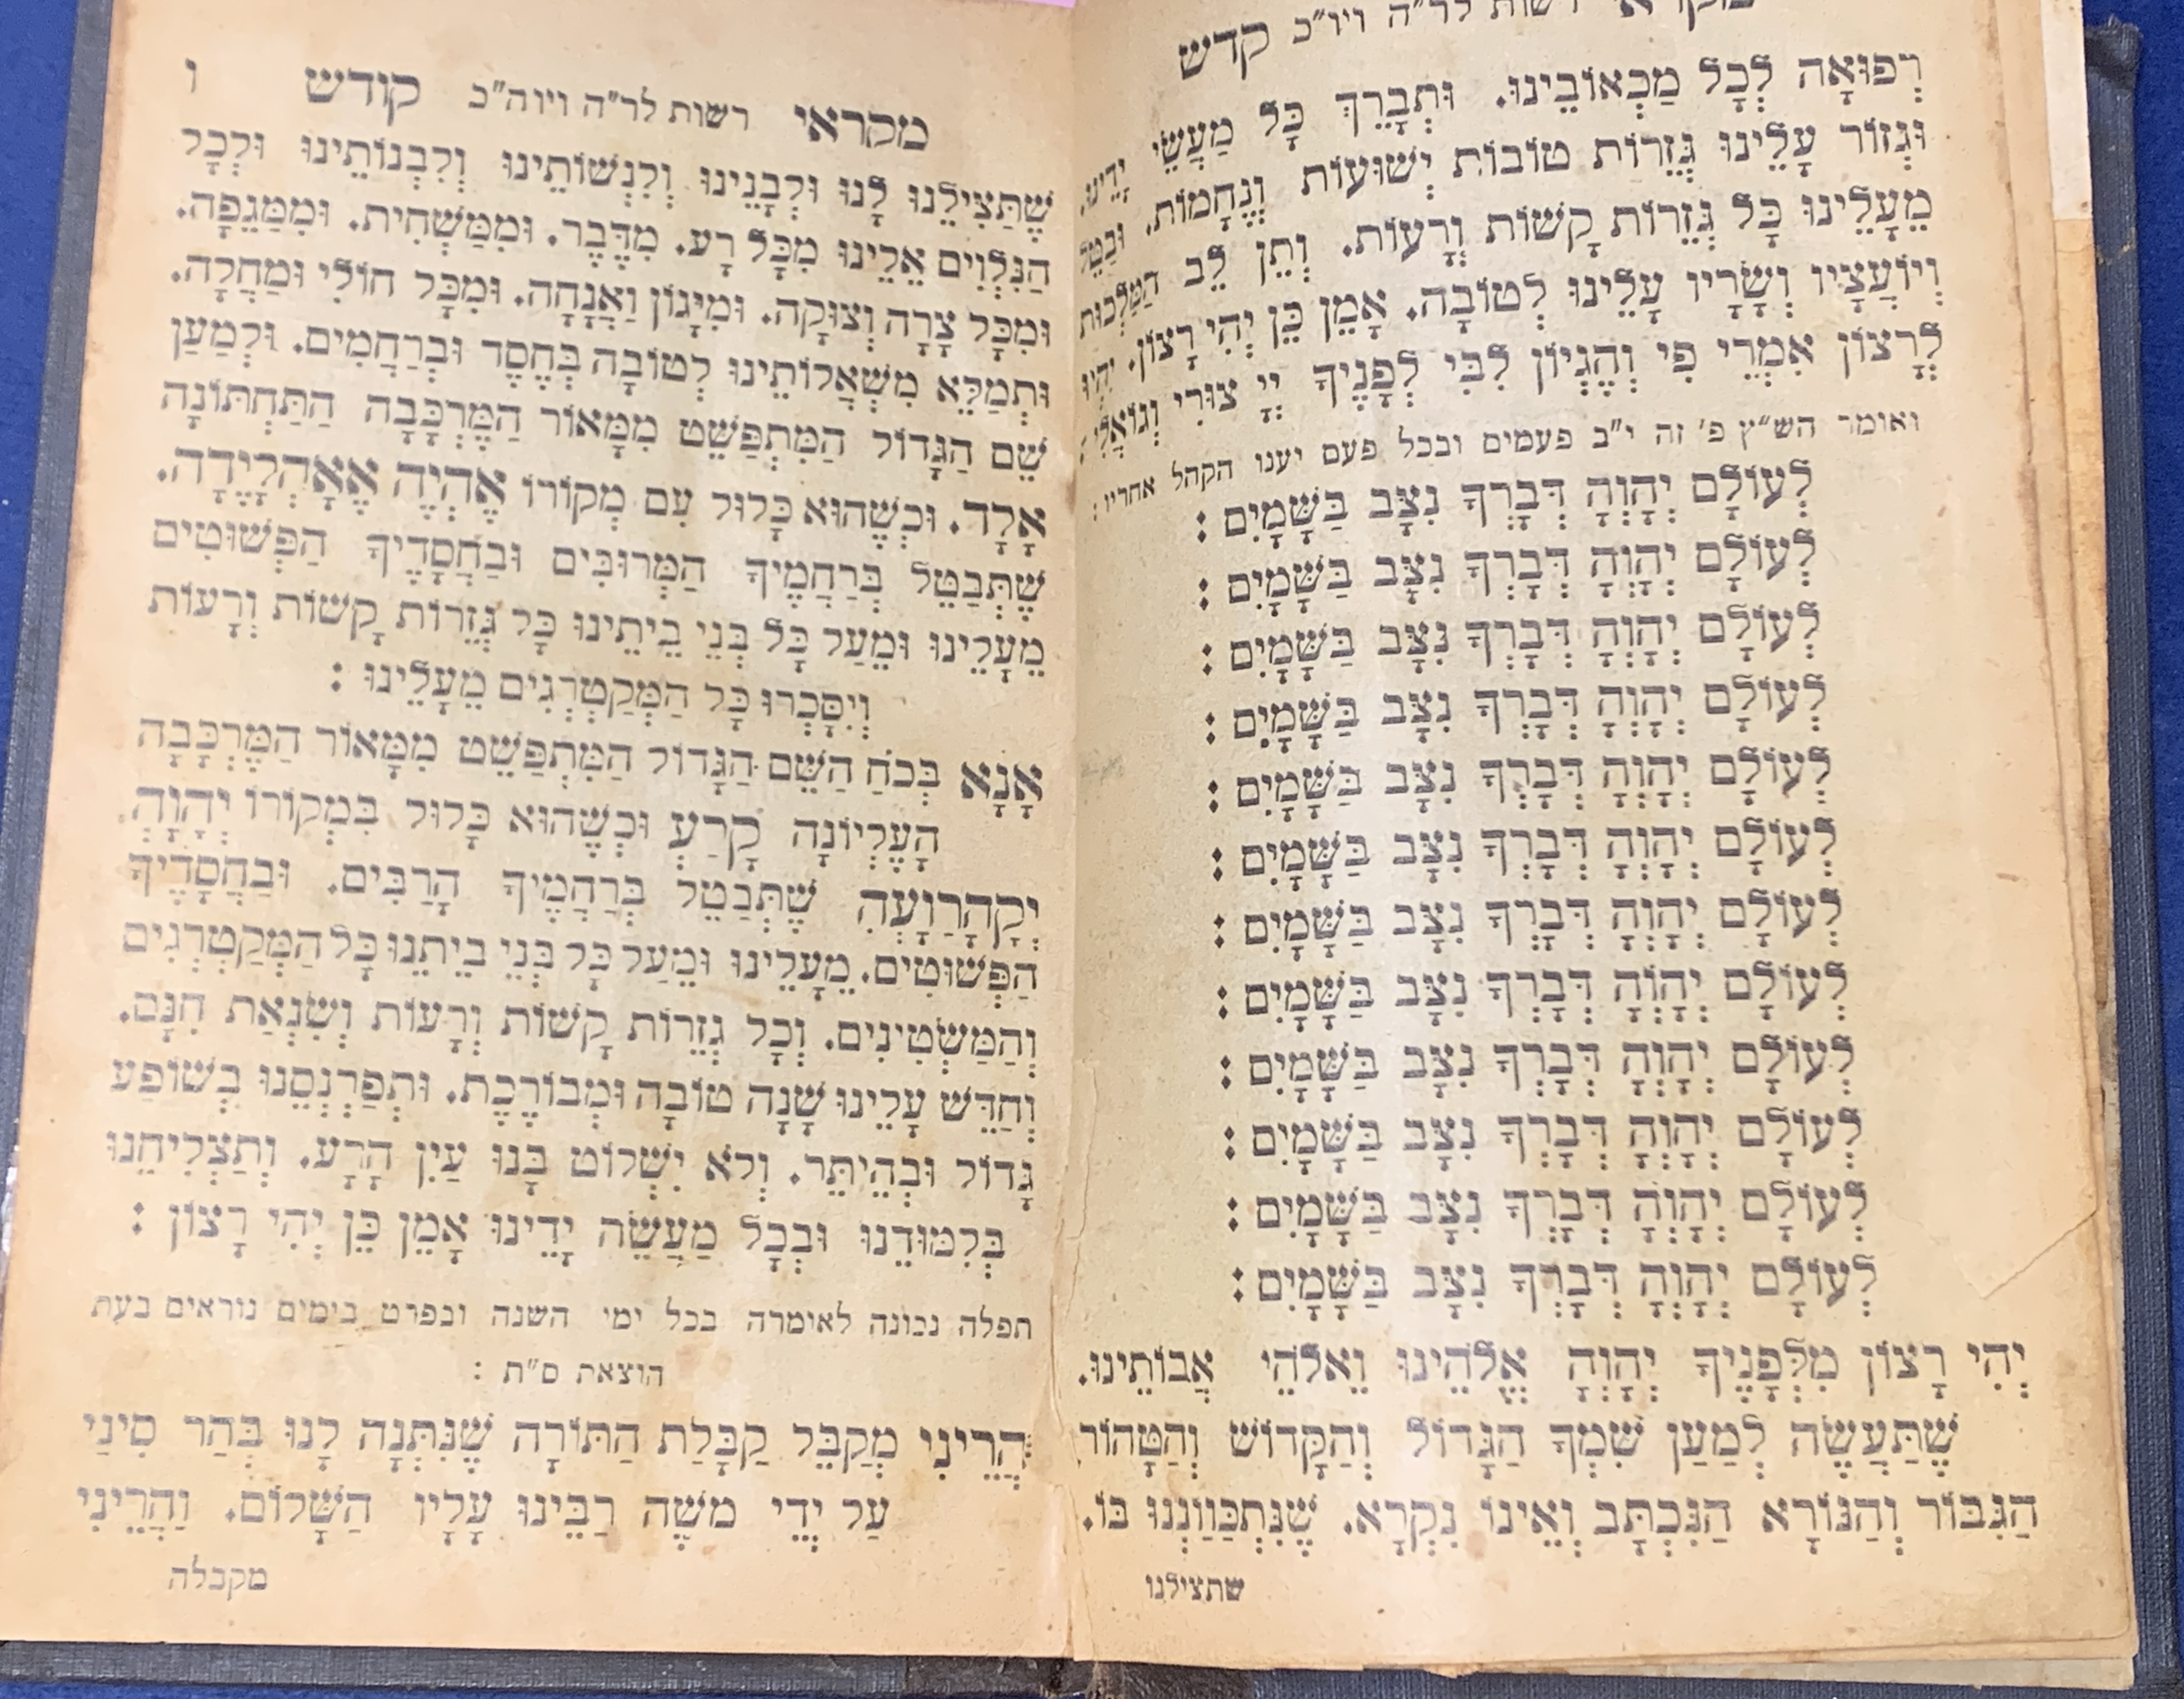 מקראי רשות לר״ה ויו״כ קדש
רְפוּאָה לְכָל מַכְאוֹבֵינוּ. וּתְבָרֵךְ כָּל מַעֲשֵׂי יָדֵינוּ.
וּגְזוֹר עָלֵינוּ גְּזֵרוֹת טוֹבוֹת יְשׁוּעוֹת וְנֶחָמוֹת. וּבַטֵּל
מֵעָלֵינוּ כָּל גְּזֵרוֹת קָשׁוֹת וְרָעוֹת. וְתֵן לֵב הַמַּלְכוּת
וְיוֹעֲצָיו וְשָׂרָיו עָלֵינוּ לְטוֹבָה. אָמֵן כֵּן יְהִי רָצוֹן. יִהְיוּ
לְרָצוֹן אִמְרֵי פִי וְהֶגְיוֹן לִבִּי לְפָנֶיךָ יְיָ צוּרִי וְגוֹאֲלִי:
ואומר הש״ץ פ׳ זה י״ב פעמים ובכל פעם יענו הקהל אחריו:
לְעוֹלָם יְהֹוָה דְּבָרְךָ נִצָּב בַּשָּׁמָיִם:
לְעוֹלָם יְהֹוָה דְּבָרְךָ נִצָּב בַּשָּׁמָיִם:
לְעוֹלָם יְהֹוָה דְּבָרְךָ נִצָּב בַּשָּׁמָיִם:
לְעוֹלָם יְהֹוָה דְּבָרְךָ נִצָּב בַּשָּׁמָיִם:
לְעוֹלָם יְהֹוָה דְּבָרְךָ נִצָּב בַּשָּׁמָיִם:
לְעוֹלָם יְהֹוָה דְּבָרְךָ נִצָּב בַּשָּׁמָיִם:
לְעוֹלָם יְהֹוָה דְּבָרְךָ נִצָּב בַּשָּׁמָיִם:
לְעוֹלָם יְהֹוָה דְּבָרְךָ נִצָּב בַּשָּׁמָיִם:
לְעוֹלָם יְהֹוָה דְּבָרְךָ נִצָּב בַּשָּׁמָיִם:
לְעוֹלָם יְהֹוָה דְּבָרְךָ נִצָּב בַּשָּׁמָיִם:
לְעוֹלָם יְהֹוָה דְּבָרְךָ נִצָּב בַּשָּׁמָיִם:
לְעוֹלָם יְהֹוָה דְּבָרְךָ נִצָּב בַּשָּׁמָיִם:
יְהִי רָצוֹן מִלְּפָנֶיךָ יְהֹוָה אֱלֹהֵינוּ וֵאלֹהֵי אֲבוֹתֵינוּ.
שֶׁתַּעֲשֶׂה לְמַעַן שִׁמְךָ הַגָּדוֹל וְהַקָּדוֹשׁ וְהַטָּהוֹר
הַגִּבּוֹר וְהַנּוֹרָא הַנִּכְתָּב וְאֵינוֹ נִקְרָא. שֶׁנִּתְכַּוַּונְנוּ בּוֹ.
שתצילנו
מקראי רשות לר״ה ויוה״כ קודש ו
שֶׁתַּצִּילֵנוּ לָנוּ וּלְבָנֵינוּ וְלִנְשׁוֹתֵינוּ וְלִבְנוֹתֵינוּ וּלְכָל
הַנִּלְוִים אֵלֵינוּ מִכָּל רָע. מִדֶּבֶר. וּמִמַּשְׁחִית. וּמִמַּגֵּפָה.
וּמִכָּל צָרָה וְצוּקָה. וּמִיָּגוֹן וַאֲנָחָה. וּמִכָּל חוֹלִי וּמַחֲלָה.
וּתְמַלֵּא מִשְׁאֲלוֹתֵינוּ לְטוֹבָה בְּחֶסֶד וּבְרַחֲמִים. וּלְמַעַן
שֵׁם הַגָּדוֹל הַמִּתְפַּשֵּׁט מִמָּאוֹר הַמֶּרְכָּבָה הַתַּחְתּוֹנָה
אָלָד. וּכְשֶׁהוּא כָּלוּל עִם מְקוֹרוֹ אֶהְיֶה אֶאָהְלָיֶדָה.
שֶׁתְּבַטֵּל בְּרַחֲמֶיךָ הַמְּרוּבִּים וּבַחֲסָדֶיךָ הַפְּשׁוּטִים
מֵעָלֵינוּ וּמֵעַל כָּל בְּנֵי בֵיתֵינוּ כָּל גְּזֵרוֹת קָשׁוֹת וְרָעוֹת
וְיִסָּכְרוּ כָּל הַמְּקַטְרְגִים מֵעָלֵינוּ:
אָנָא בְּכֹחַ הַשֵּׁם הַגָּדוֹל הַמִּתְפַּשֵּׁט מִמָּאוֹר הַמֶּרְכָּבָה
הָעֶלְיוֹנָה קָרַעְ וּכְשֶׁהוּא כָּלוּל בִּמְקוֹרוֹ יְהֹוָה
יְקָהָרַוָעְהִ שֶׁתְּבַטֵל בְּרַחֲמֶיךָ הָרַבִּים. וּבַחֲסָדֶיךָ
הַפְּשׁוּטִים. מֵעָלֵינוּ וּמֵעַל כָּל בְּנֵי בֵיתֵנוּ כָּל הַמְּקַטְרְגִים
וְהַמַּשְׂטִינִים. וְכָל גְזֵרוֹת קָשׁוֹת וְרָעוֹת וְשִׂנְאַת חִנָּם.
וְחַדֵּשׁ עָלֵינוּ שָׁנָה טוֹבָה וּמְבוֹרֶכֶת. וּתְפַרְנְסֵנוּ בְּשׁוֹפַע
גָּדוֹל וּבְהֵיתֵּר. וְלֹא יִשְׁלוֹט בָּנוּ עַיִן הָרָע. וְתַצְלִיחֵנוּ
בְּלִמּוּדֵנוּ וּבְכָל מַעֲשֵׂה יָדֵינוּ אָמֵן כֵּן יְהִי רָצוֹן:
תפלה נכונה לאומרה בכל ימי השנה ובפרט בימים נוראים בעת
הוצאת ס״ת:
הֲרֵינִי מְקַבֵּל קַבָּלַת הַתּוֹרָה שֶׁנִּתְּנָה לָנוּ בְּהַר סִינַי
עַל יְדֵי מֹשֶׁה רַבֵּינוּ עָלָיו הַשָּׁלוֹם. וַהֲרֵינִי
מקבלה